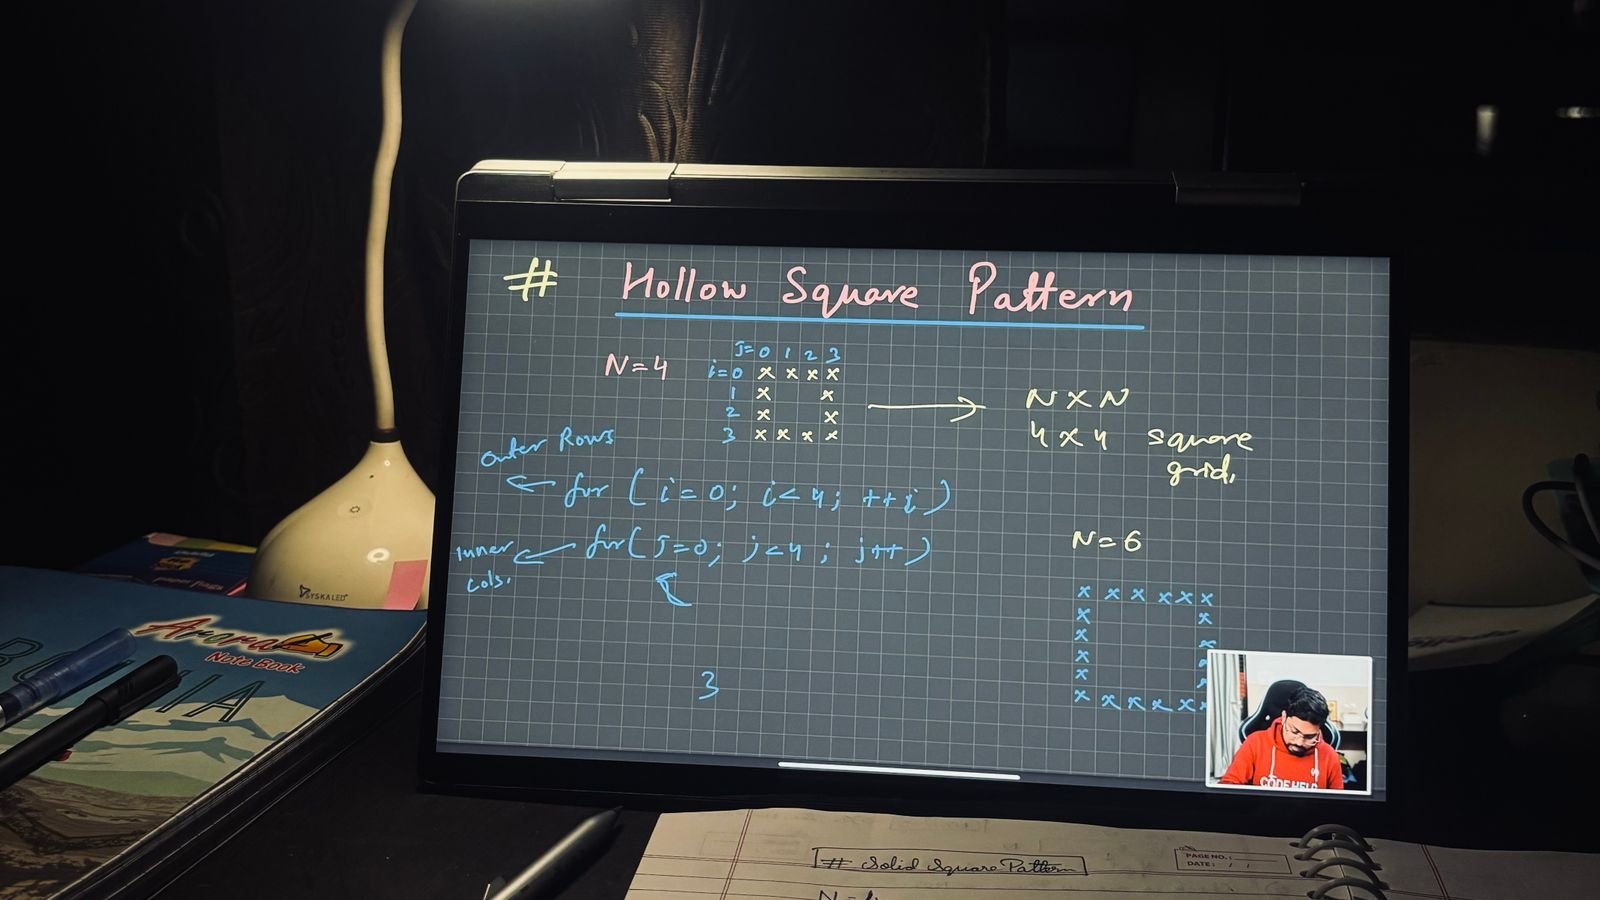 # Hollow Square Pattern
N=4
J= 0 1 2 3
i=0 x x x x
1 x x
2 x x
3 x x x x
N x N
4 x 4 square
grid.
Outer Rows
for ( i = 0; i < 4; ++i )
Inner
cols.
for( J=0; j<4 ; j++ )
{
3
N=6
x x x x x x
x x
x x
x
x
x x x x x
CODE HELP
SYSKALED
paper flags
Aroma
Note Book
# Solid Square Pattern
PAGE NO.:
DATE: / /
N=4